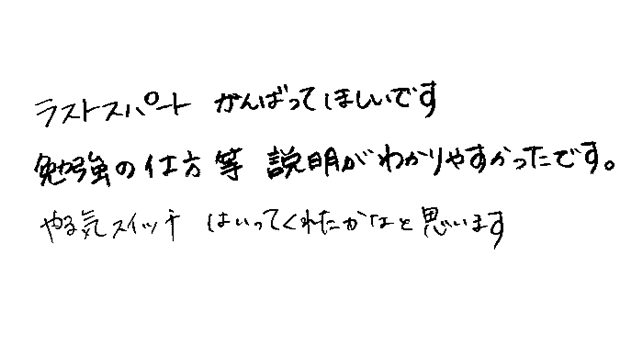 ラストスパート がんばってほしいです
勉強の仕方等 説明がわかりやすかったです。
やる気スイッチ はいってくれたかなと思います